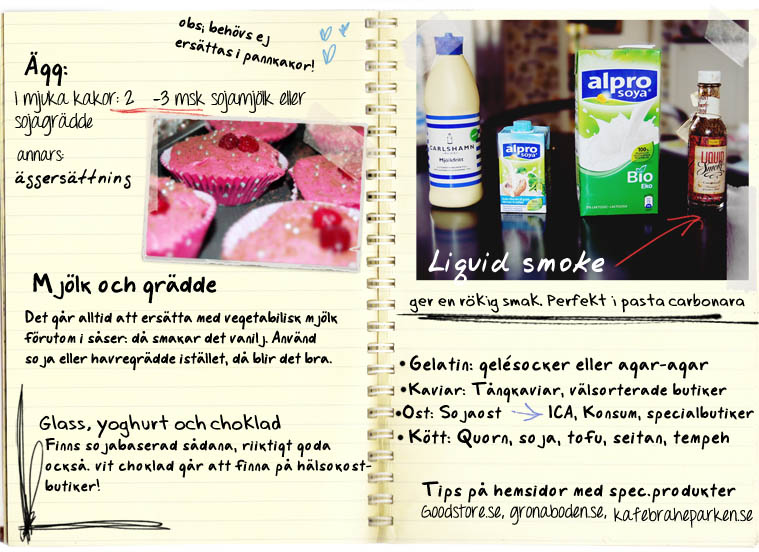 obs; behövs ej
ersättas i pannkakor!
Ägg:
I mjuka kakor: 2 -3 msk sojamjölk eller
sojagrädde
annars:
äggersättning
Mjölk och grädde
Det går alltid att ersätta med vegetabilisk mjölk
förutom i såser: då smakar det vanilj. Använd
soja eller havregrädde istället, då blir det bra.
Glass, yoghurt och choklad
Finns sojabaserad sådana, riiktigt goda
också. vit choklad går att finna på hälsokost-
butiker!
CARLSHAMN
Mjölkfritt
alpro
soya
alpro
soya
100%
Bio
Eko
LIQUID
Smoke
Liquid smoke
ger en rökig smak. Perfekt i pasta carbonara
• Gelatin: gelésocker eller agar-agar
• Kaviar: Tångkaviar, välsorterade butiker
• Ost: Sojaost → ICA, Konsum, specialbutiker
• Kött: Quorn, soja, tofu, seitan, tempeh
Tips på hemsidor med spec.produkter
Goodstore.se, gronaboden.se, kafebraheparken.se